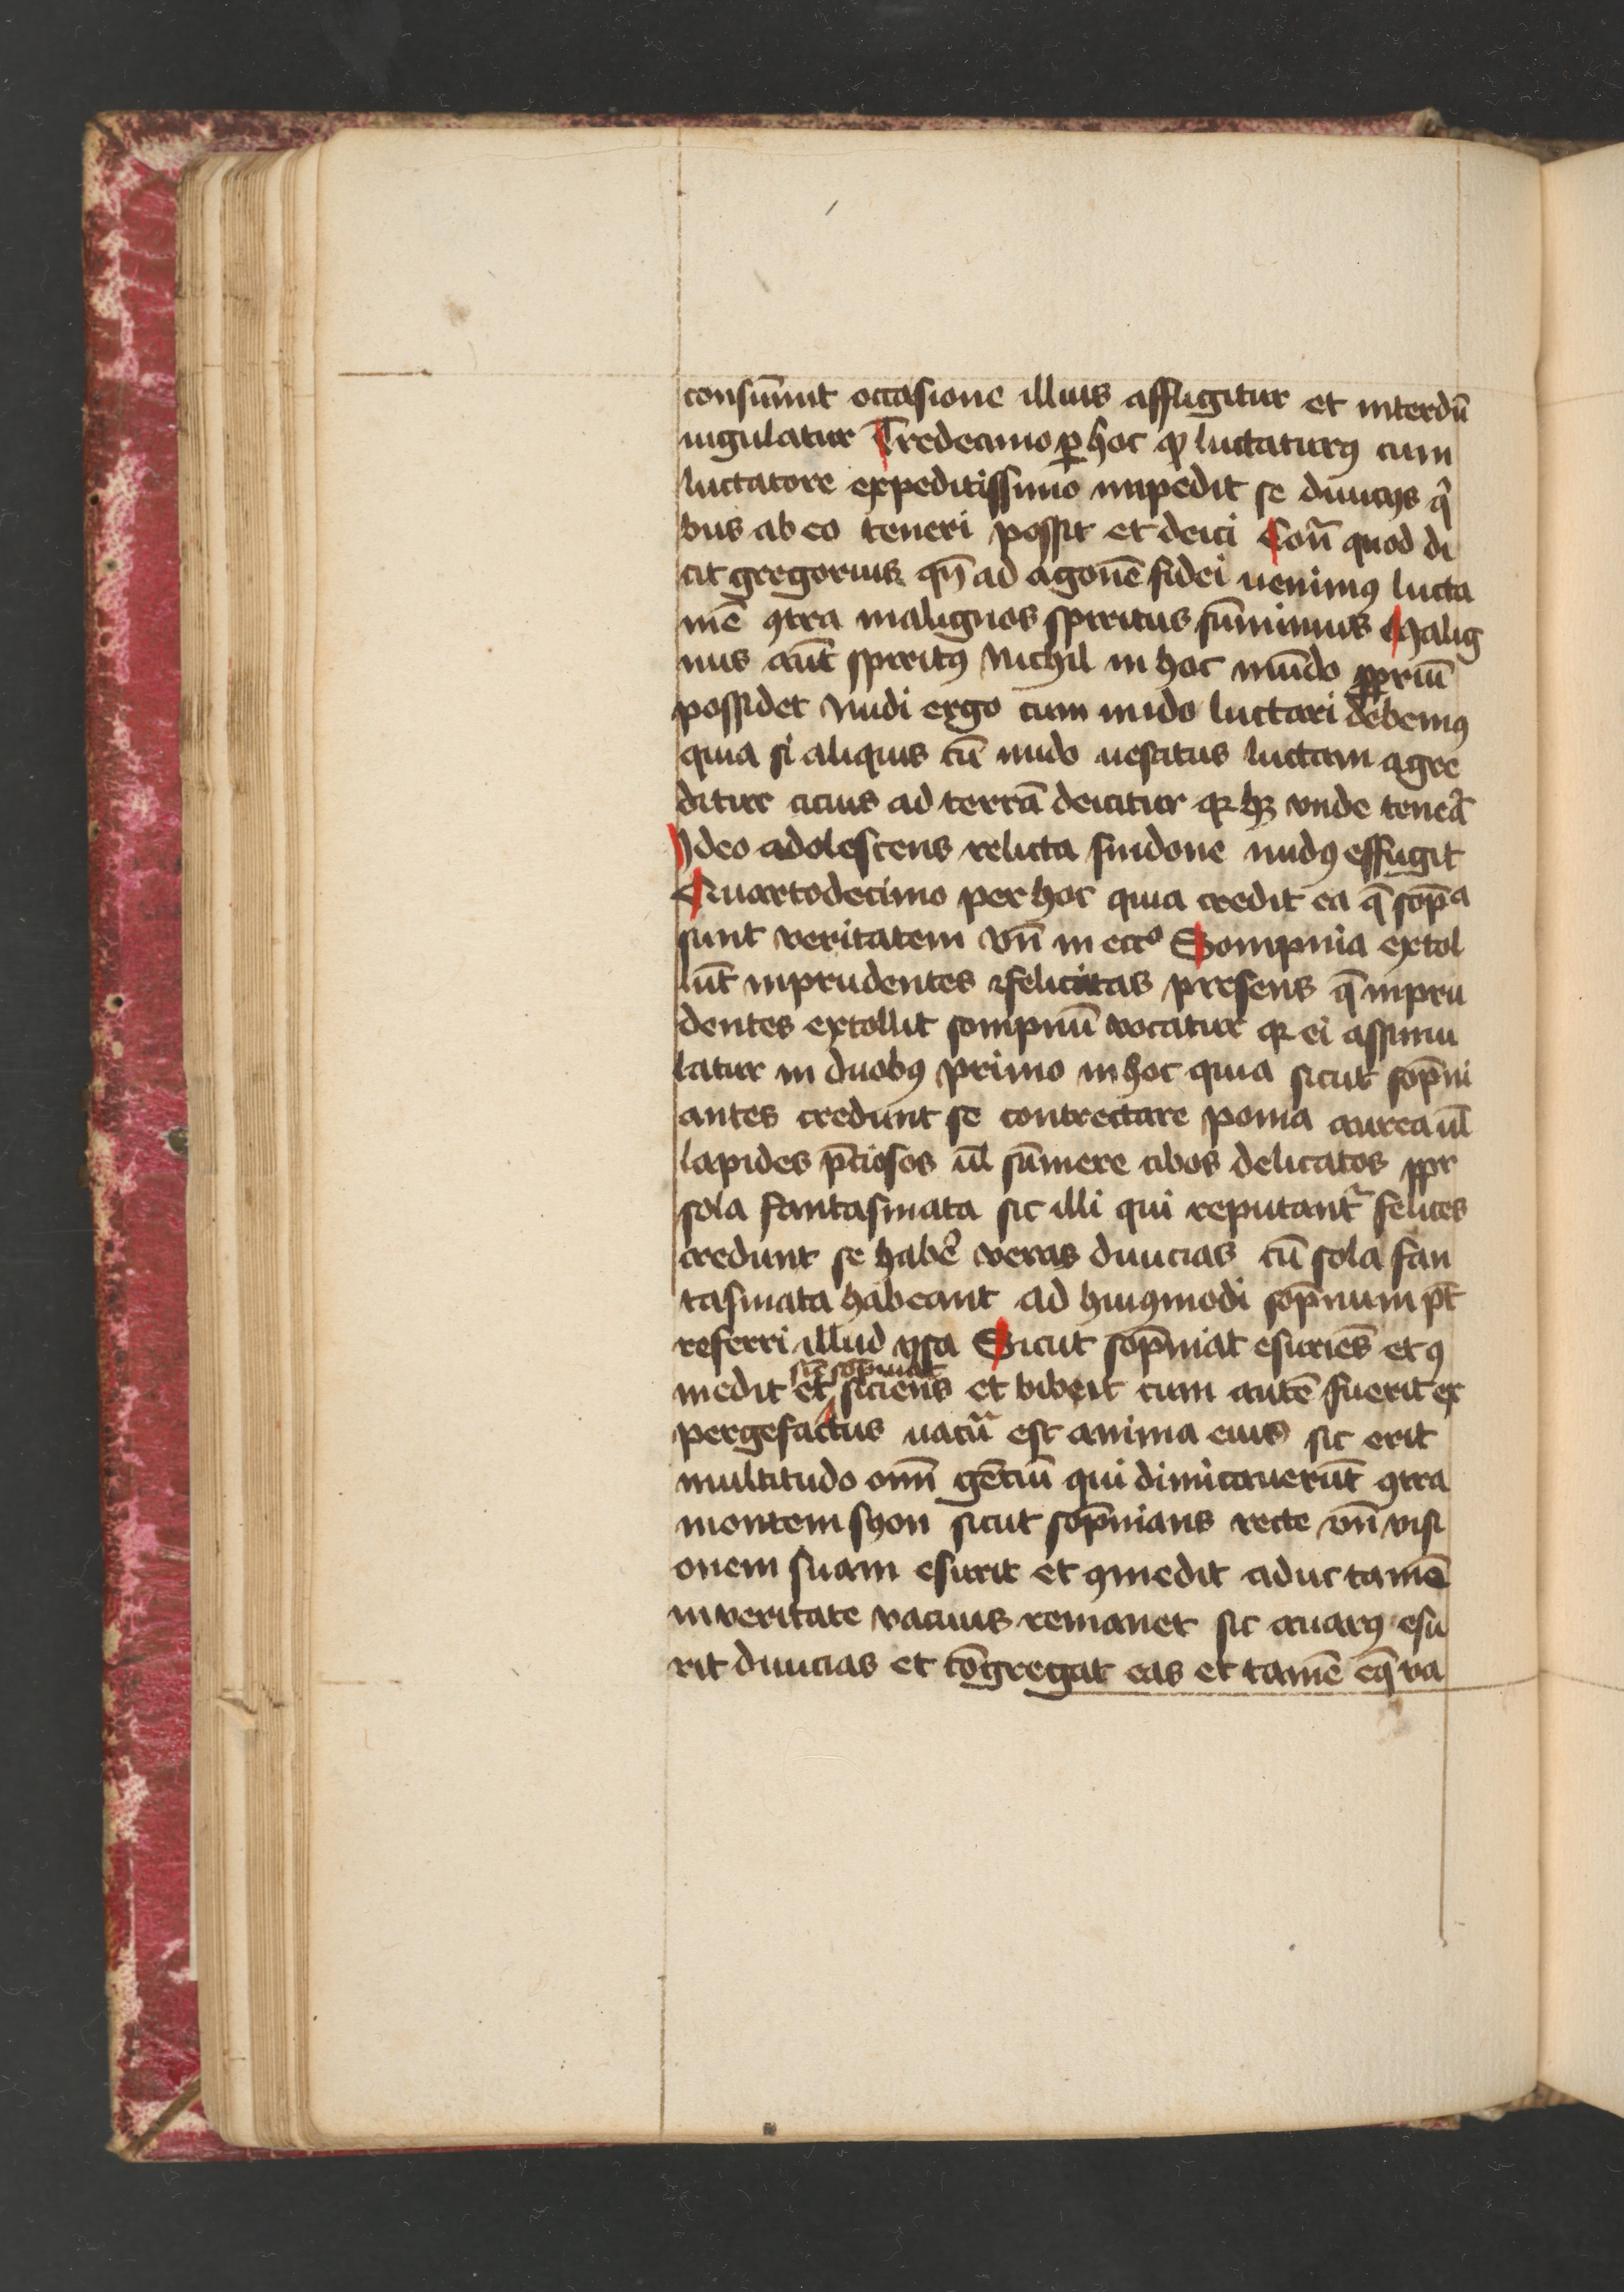 consūmit occasione illius affligitur et interdū
iugulatur Tredecimo ꝑ hoc ꝙ luctaturꝰ cum
luctatore expeditissimo impedit se diuicijs qͥ
bus ab eo teneri possit et deici Cōn̄ quod di
cit gregorius qn̄ ad agonē fidei uenimꝰ lucta
mē ꝯtra malignos spiritus sūmimus Malig
nus aūt spiritꝰ Nichil in hoc mūdo ꝓpriū
possidet Nudi ergo cum nudo luctari debemꝰ
quia si aliquis cū nudo uestitus luctam agre
ditur cicius ad terrā deicitur qꝛ hꝫ vnde teneat᷑
Ideo adolescens relicta sindone nudꝰ effugit
Quartodecimo per hoc quia credit ea q̄ sop̄ᵃ
sunt veritatem vn̄ in eccᵒ Sompnia extol
lūt inprudentes ⁊ felicitas presens q̄ inpru
dentes extollit sompniū vocatur qꝛ ei assimu
latur in duobꝰ primo in hoc quia sicut sop̄ni
antes credunt se contrectare poma aurea ul̄
lapides p̄ciosos ul̄ sūmere cibos delicatos ꝓpr
sola fantasmata sic illi qui reputant᷑ felices
credunt se habe᷑ veras diuicias cū sola fan
tasmata habeant ad huiꝰmodi sop̄nium pt̄
referri illud ysa Sicut sop̄niat esuriēs et ꝯ
medit et siciens et biberit cum autē fuerit ex
sic̄ sop̄niat
pergefactus uacua est anima eius sic erit
multitudo om̄ gētiū qui dimicauerūt ꝯtra
montem syon sicut sop̄nians recte vn̄ visi
onem suam esurit et ꝯmedit aduc tamē
in veritate vacuus remanet sic auarꝰ esu
rit diuicias et cōgregat eas et tamē eq̄ va